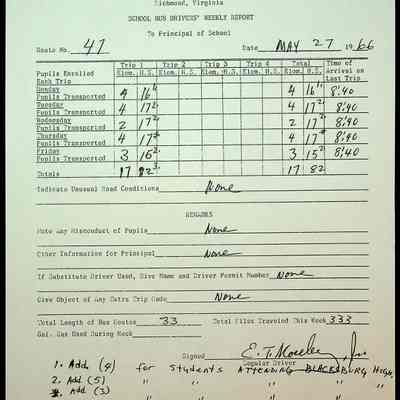 Richmond, Virginia
SCHOOL BUS DRIVERS' WEEKLY REPORT
To Principal of School
Route No. 47 Date MAY 27 1966
Trip 1 Trip 2 Trip 3 Trip 4 Total Time of
Pupils Enrolled Elem. H.S. Elem. H.S. Elem. H.S. Elem. H.S. Elem. H.S. Arrival on
Each Trip Last Trip
Monday
Pupils Transported 4 16 4 16 8:40
Tuesday
Pupils Transported 4 17 4 17 8:40
Wednesday
Pupils Transported 2 17 2 17 8:40
Thursday
Pupils Transported 4 17 4 17 8:40
Friday
Pupils Transported 3 15 3 15 8:40
Totals 17 82 17 82
Indicate Unusual Road Conditions None
REMARKS
Note Any Misconduct of Pupils None
Other Information for Principal None
If Substitute Driver Used, Give Name and Driver Permit Number None
Give Object of Any Extra Trip Made None
Total Length of Bus Routes 33 Total Miles Traveled This Week 333
Gal. Gas Used During Week
Signed E. T. Moseley, Jr.
Regular Driver
1. Add (4) for Students ATTENDING BLACKSBURG HIGH,
2. Add (5) " " " "
3. Add (3) " " " "